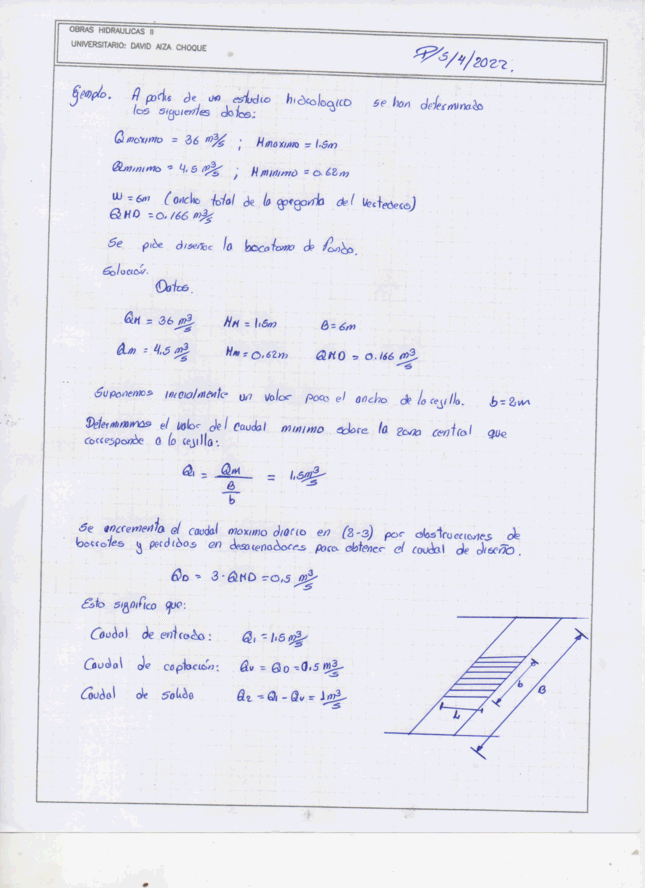 OBRAS HIDRAULICAS II
UNIVERSITARIO: DAVID AIZA CHOQUE
P/5/4/2022.
Ejemplo. A partir de un estudio hidrologico se han determinado
los siguientes datos:
Qmaximo = 36 m³/s ; Hmaximo = 1.5m
Qminimo = 4.5 m³/s ; Hminimo = 0.62m
W = 6m (ancho total de la garganta del vertedero)
QMD = 0.166 m³/s
Se pide diseñar la bocatoma de fondo.
Solución.
Datos.
QM = 36 m³/s HM = 1.5m B = 6m
Qm = 4.5 m³/s Hm = 0.62m QMD = 0.166 m³/s
Suponemos inicialmente un valor para el ancho de la rejilla. b = 2m
Determinamos el valor del caudal minimo sobre la zona central que
corresponde a la rejilla:
Q₁ = Qm / (B/b) = 1.5 m³/s
Se incrementa el caudal maximo diario en (2-3) por obstrucciones de
barrotes y perdidas en desarenadores para obtener el caudal de diseño.
QD = 3·QMD = 0.5 m³/s
Esto significa que:
Caudal de entrada: Q₁ = 1.5 m³/s
Caudal de captación: Qv = QD = 0.5 m³/s
Caudal de salida Q₂ = Q₁ - Qv = 1 m³/s
b
B
L